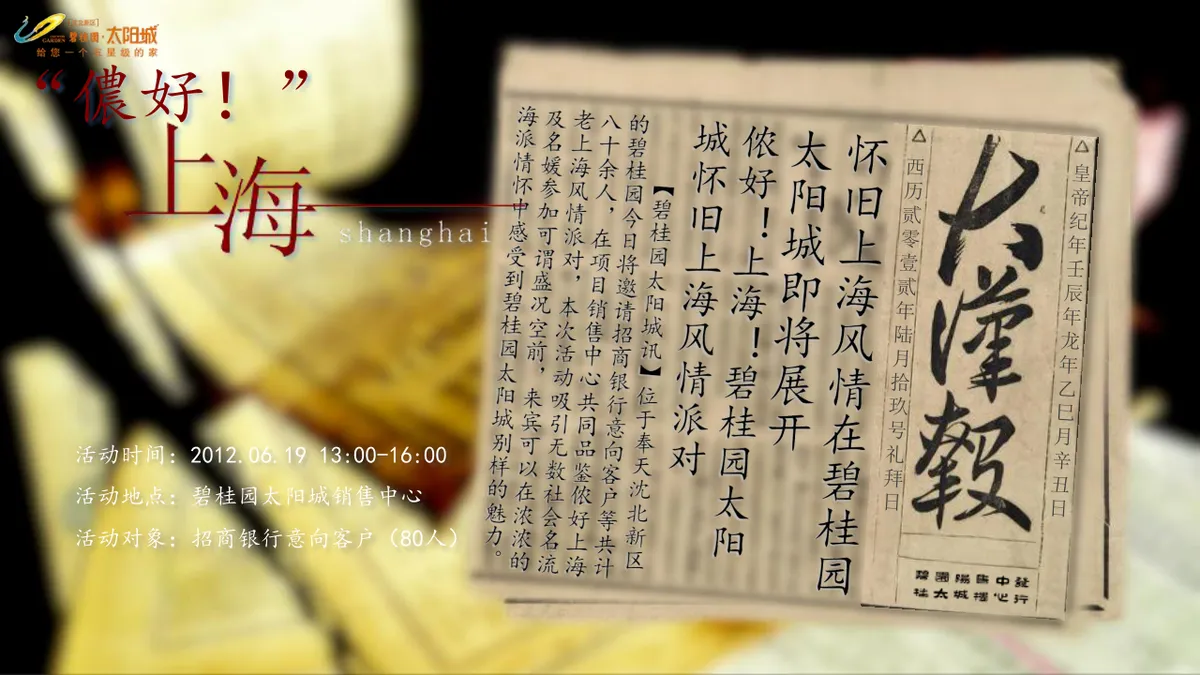 [沈北新区]
碧桂园·太阳城
GARDEN
给您一个五星级的家
“儂好！”
上海
shanghai
活动时间：2012.06.19 13:00-16:00
活动地点：碧桂园太阳城销售中心
活动对象：招商银行意向客户（80人）
皇帝纪年壬辰年龙年乙巳月辛丑日
大漢報
碧園陽售中發
桂太城樓心行
西历贰零壹贰年陆月拾玖号礼拜日
怀旧上海风情在碧桂园
太阳城即将展开
侬好！上海！碧桂园太阳
城怀旧上海风情派对
【碧桂园太阳城讯】位于奉天沈北新区
的碧桂园今日将邀请招商银行意向客户等共计
八十余人，在项目销售中心共同品鉴侬好上海
老上海风情派对，本次活动吸引无数社会名流
及名媛参加可谓盛况空前，来宾可以在浓浓的
海派情怀中感受到碧桂园太阳城别样的魅力。